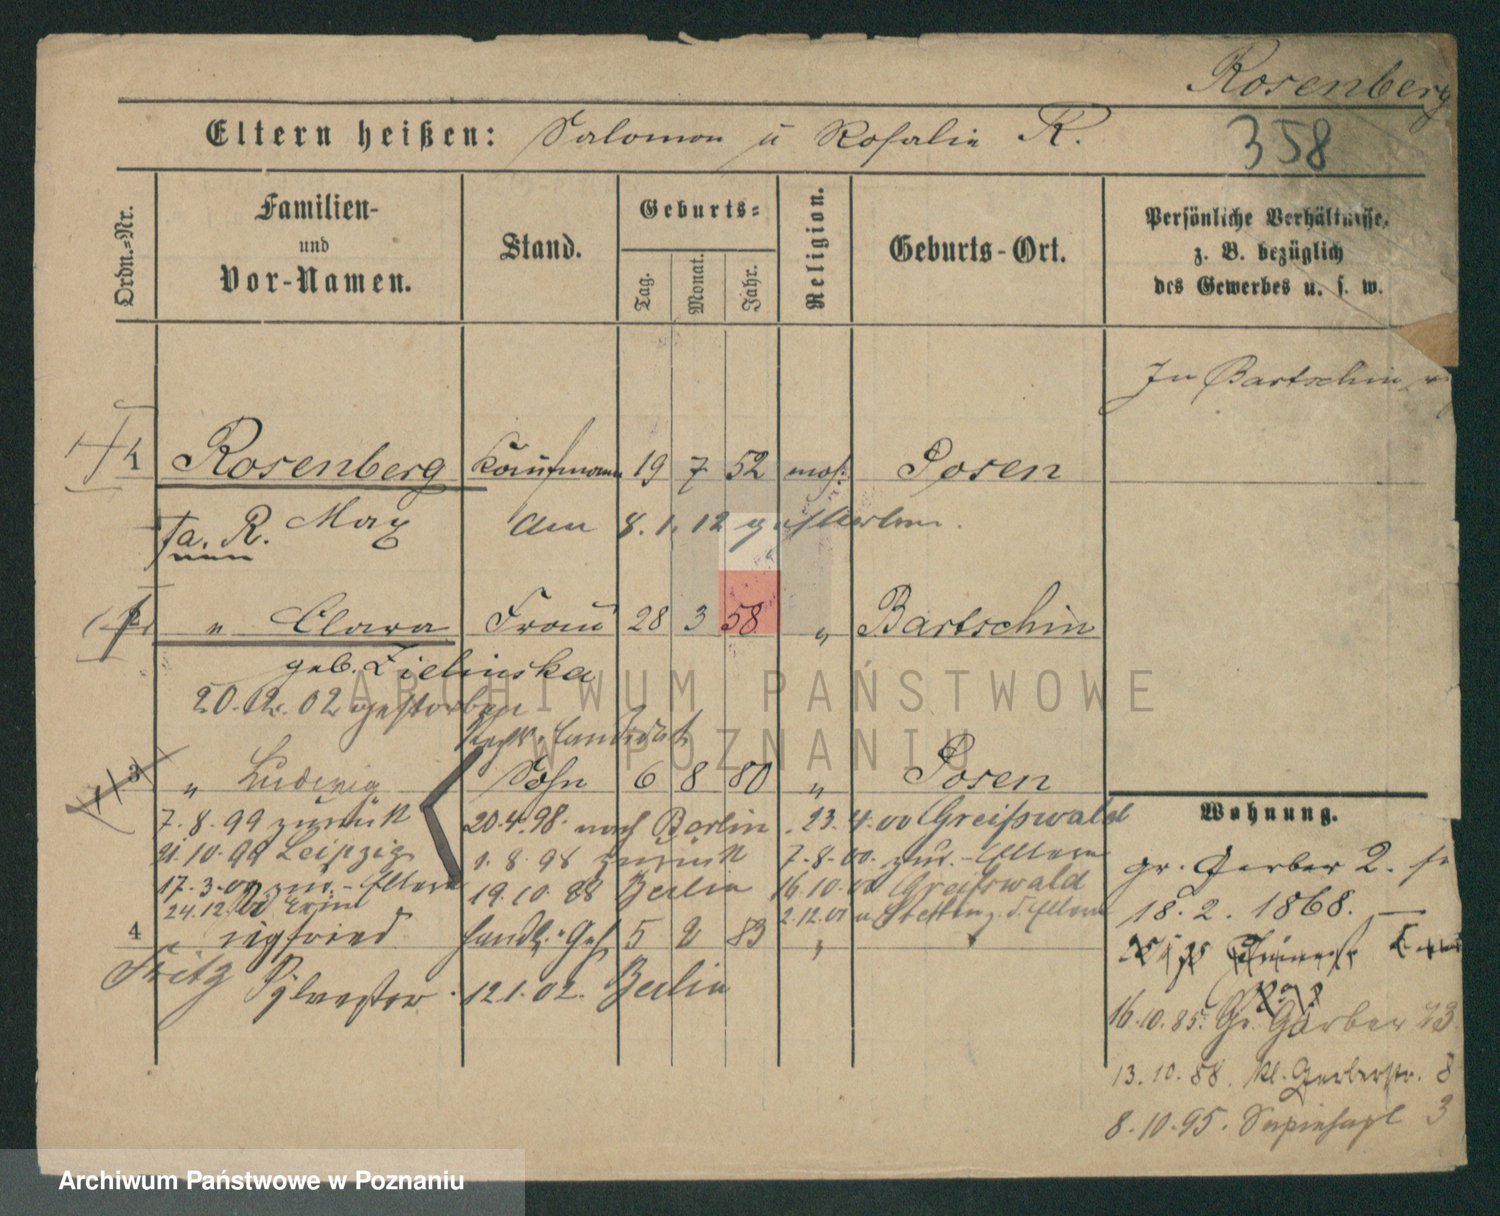 Rosenberg
Eltern heißen: Salomon u Rosalie R.
358
Ordn.=Nr.
Familien-
und
Vor-Namen.
Stand.
Geburts=
Tag.
Monat.
Jahr.
Religion.
Geburts-Ort.
Persönliche Verhältnisse,
z. B. bezüglich
des Gewerbes u. s. w.
In Bartschin
1 Rosenberg Kaufmann 19 7 52 mos: Posen
fa. R. Max am 8. 1. 12 gestorben.
" Clara Frau 28 3 58 " Bartschin
geb. Zielinska
20. 12. 02 gestorben
ARCHIWUM PAŃSTWOWE
W POZNANIU
3 " Ludwig Sohn 6 8 80 " Posen
7. 8. 99 zurück 20.4.98. nach Berlin 23. 4. 00 Greifswald
21. 10. 99 Leipzig 1. 8. 98 zurück 7-8-00. zur. - Eltern
17-3-00 zur. - Eltern 19. 10. 98 Berlin 16. 10. 00 Greifswald
24.12.00 2.12.01 Stettin z. d. Eltern
4 " Siegfried Handl. Geh 5 2 83 "
Fritz Sylvester 12 1. 02. Berlin
Wohnung.
gr. Gerber 2.
18. 2. 1868.
16. 10. 85. Gr. Gerber 43
13. 10. 88. Kl. Gerberstr. 8
8. 10. 95. Sapiehapl 3
Archiwum Państwowe w Poznaniu